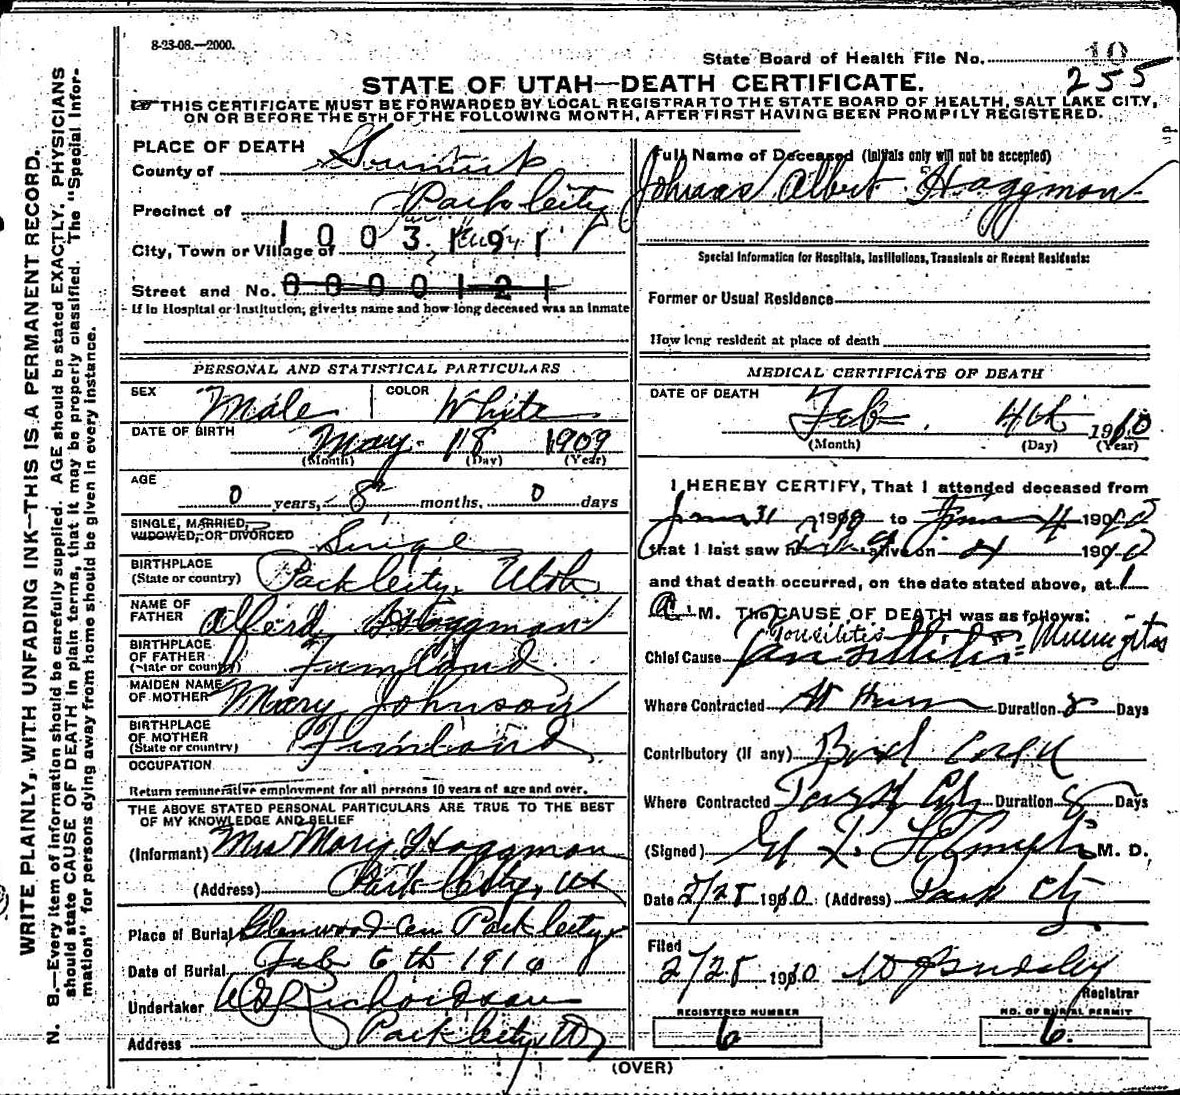 8-23-08.—2000.
State Board of Health File No. 10
255
STATE OF UTAH—DEATH CERTIFICATE.
THIS CERTIFICATE MUST BE FORWARDED BY LOCAL REGISTRAR TO THE STATE BOARD OF HEALTH, SALT LAKE CITY,
ON OR BEFORE THE 5TH OF THE FOLLOWING MONTH, AFTER FIRST HAVING BEEN PROMPILY REGISTERED.
WRITE PLAINLY, WITH UNFADING INK—THIS IS A PERMANENT RECORD.
N. B.—Every item of information should be carefully supplied. AGE should be stated EXACTLY. PHYSICIANS
should state CAUSE OF DEATH in plain terms, that it may be properly classified. The "Special Infor-
mation" for persons dying away from home should be given in every instance.
PLACE OF DEATH
County of Summit
Precinct of Park City
City, Town or Village of 1003191
Street and No. 0000121
If in Hospital or Institution, give its name and how long deceased was an inmate
PERSONAL AND STATISTICAL PARTICULARS
SEX Male COLOR White
DATE OF BIRTH May 18 1909
(Month) (Day) (Year)
AGE
0 years, 8 months, 0 days
SINGLE, MARRIED,
WIDOWED, OR DIVORCED Singe
BIRTHPLACE
(State or country) Park City, Utah
NAME OF
FATHER Alferd Haggman
BIRTHPLACE
OF FATHER
(State or country) Finnland
MAIDEN NAME
OF MOTHER Mary Johnson
BIRTHPLACE
OF MOTHER
(State or country) Finnland
OCCUPATION
Return remunerative employment for all persons 10 years of age and over.
THE ABOVE STATED PERSONAL PARTICULARS ARE TRUE TO THE BEST
OF MY KNOWLEDGE AND BELIEF
(Informant) Mrs Mary Haggman
(Address) Park City, Ut
Place of Burial Glenwood Cem Park City
Date of Burial Feb 6th 1910
Undertaker Richardson
Address Park City, Ut
Full Name of Deceased (Initials only will not be accepted)
Johnas Albert Haggman
Special Information for Hospitals, Institutions, Transients or Recent Residents:
Former or Usual Residence
How long resident at place of death
MEDICAL CERTIFICATE OF DEATH
DATE OF DEATH
Feb 4th 1910
(Month) (Day) (Year)
I HEREBY CERTIFY, That I attended deceased from
31 190 to 4 1910
that I last saw h alive on 4 1910
and that death occurred, on the date stated above, at 1
A. M. The CAUSE OF DEATH was as follows:
Tonsilites
Chief Cause Tonsillitis
Where Contracted At Home Duration 8 Days
Contributory (if any) Bad
Where Contracted Park City Duration 8 Days
(Signed) M. D.
Date 2/28 1910 (Address) Park City
Filed
2/28 1910
Registrar
REGISTERED NUMBER
6
NO. OF BURIAL PERMIT
6.
(OVER)